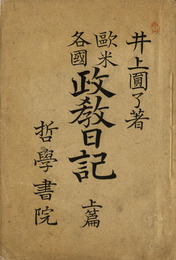 井上圓了著
歐米各國
政教日記
上篇
哲學書院